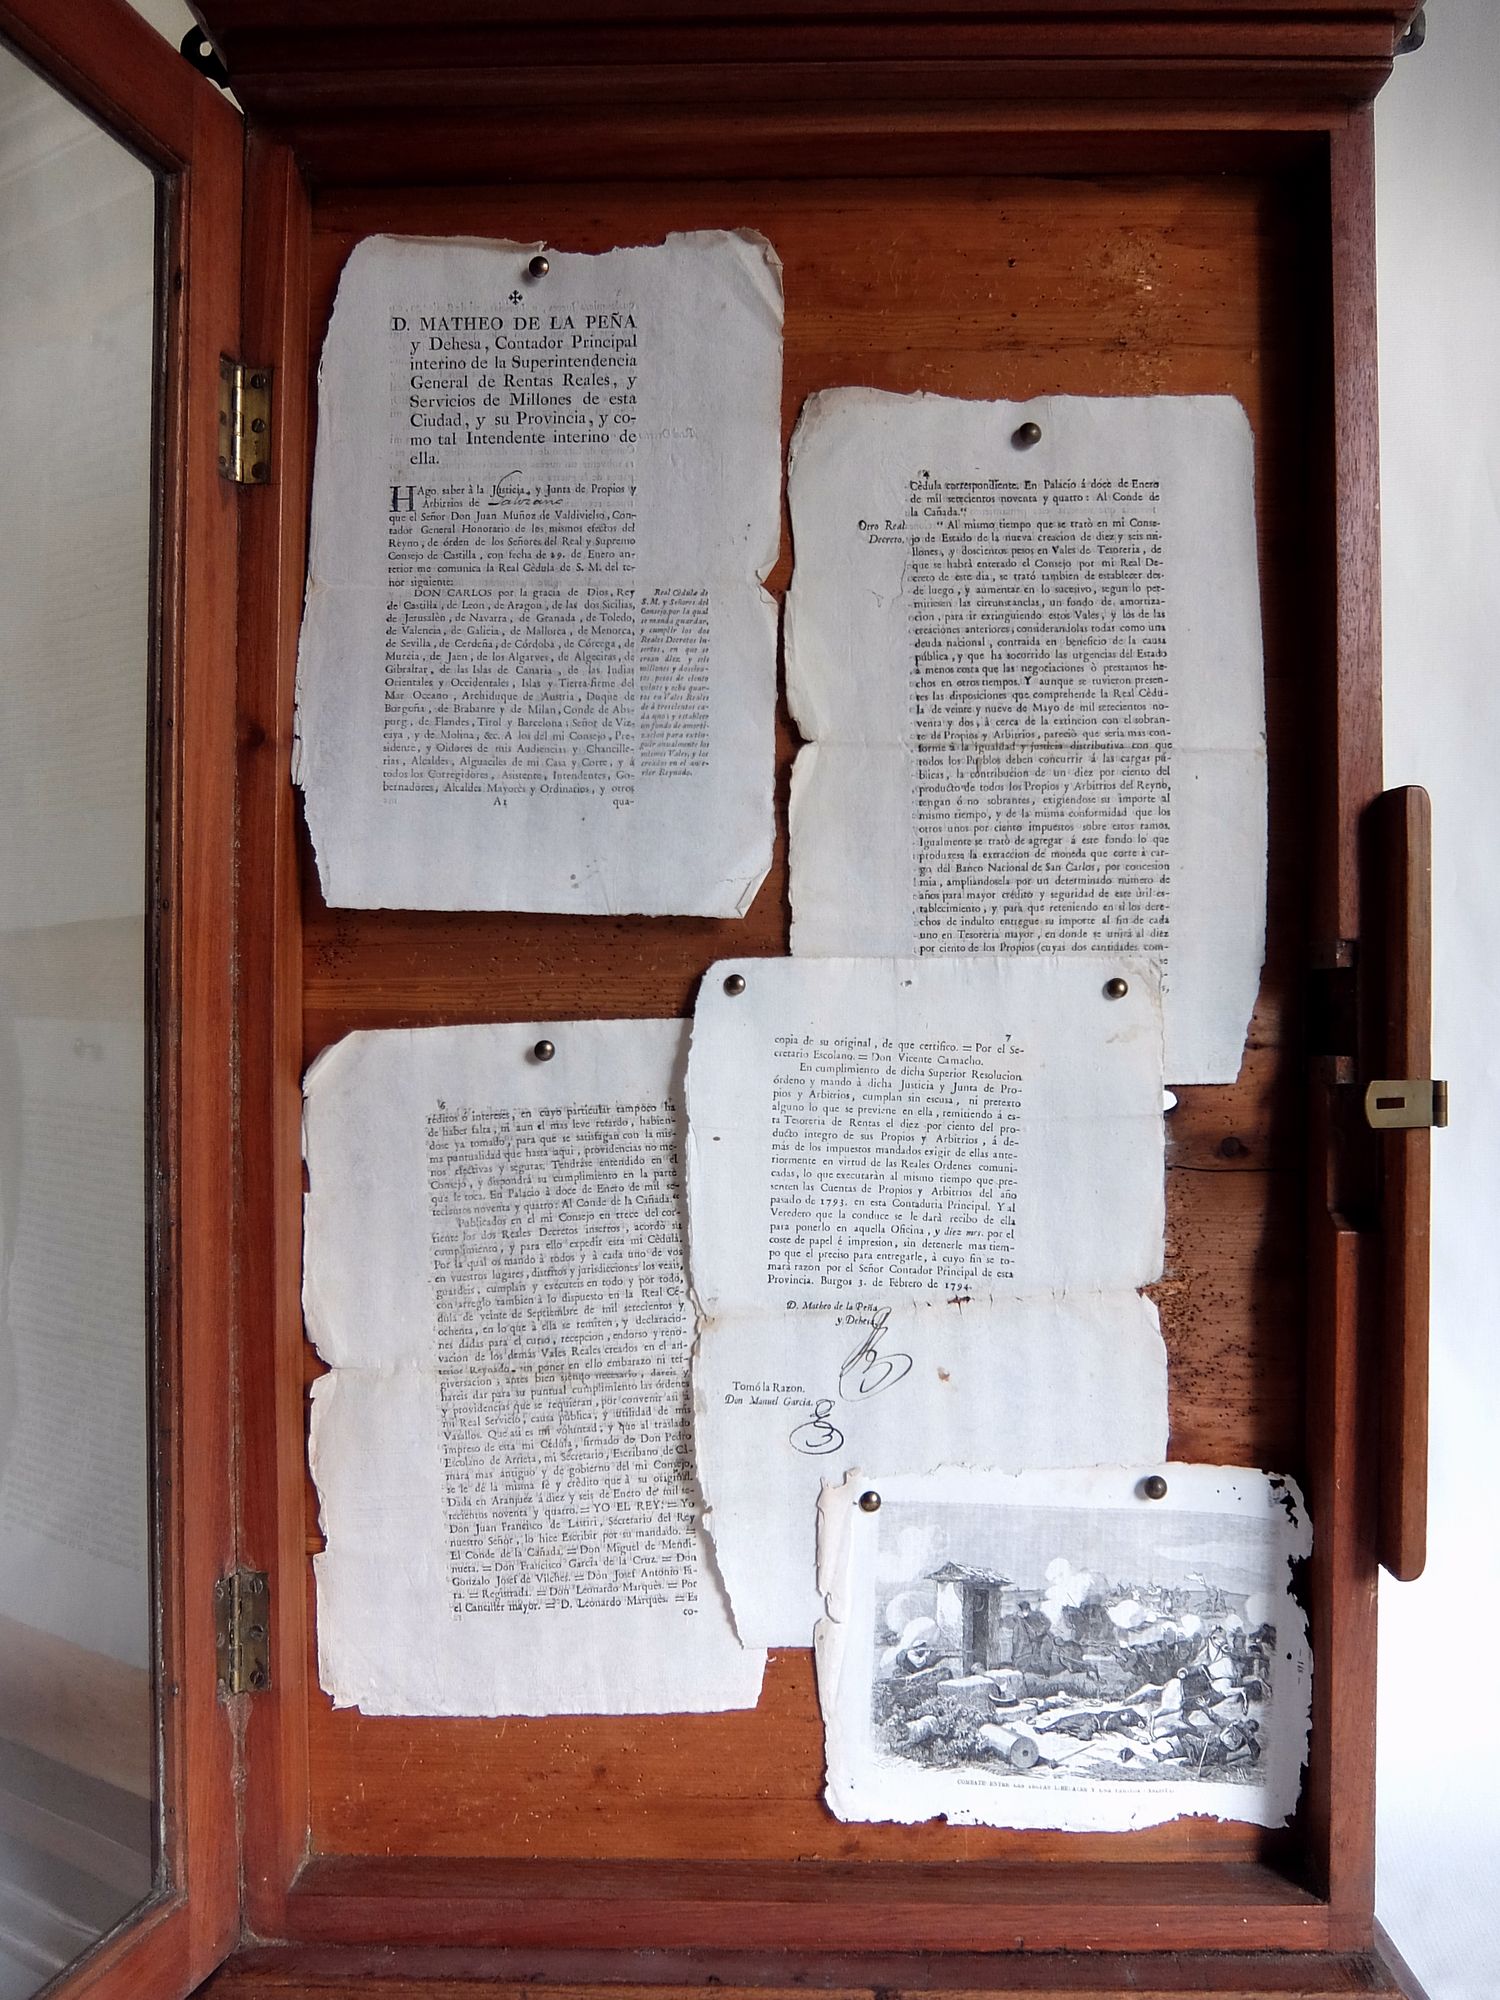 D. MATHEO DE LA PEÑA
y Dehesa, Contador Principal
interino de la Superintendencia
General de Rentas Reales, y
Servicios de Millones de esta
Ciudad, y su Provincia, y co-
mo tal Intendente interino de
ella.
HAgo saber à la Justicia, y Junta de Propios y
Arbitrios de
que el Señor Don Juan Muñoz de Valdivielso, Con-
tador General Honorario de los mismos efectos del
Reyno, de órden de los Señores del Real y Supremo
Consejo de Castilla, con fecha de 29. de Enero an-
terior me comunica la Real Cèdula de S. M. del te-
nor siguiente:
DON CARLOS por la gracia de Dios, Rey
de Castilla, de Leon, de Aragon, de las dos Sicilias,
de Jerusalèn, de Navarra, de Granada, de Toledo,
de Valencia, de Galicia, de Mallorca, de Menorca,
de Sevilla, de Cerdeña, de Córdoba, de Córcega, de
Murcia, de Jaen, de los Algarves, de Algeciras, de
Gibraltar, de las Islas de Canaria, de las Indias
Orientales y Occidentales, Islas y Tierra-firme del
Mar Oceano, Archiduque de Austria, Duque de
Borgoña, de Brabante y de Milan, Conde de Abs-
purg, de Flandes, Tirol y Barcelona; Señor de Viz-
caya, y de Molina, &c. A los del mi Consejo, Pre-
sidente, y Oidores de mis Audiencias y Chancille-
rias, Alcaldes, Alguaciles de mi Casa y Corte, y à
todos los Corregidores, Asistente, Intendentes, Go-
bernadores, Alcaldes Mayores y Ordinarios, y otros
A1 qua-
Real Cèdula de
S. M. y Señores del
Consejo, por la qual
se manda guardar,
y cumplir los dos
Reales Decretos in-
sertos, en que se
crean diez y seis
millones y doscien-
tos pesos de ciento
veinte y ocho quar-
tos en Vales Reales
de à trescientos ca-
da uno; y establece
un fondo de amorti-
zacion para extin-
guir anualmente los
mismos Vales, y los
creados en el ante-
rior Reynado.
Cèdula correspondiente. En Palacio à doce de Enero
de mil setecientos noventa y quatro: Al Conde de
la Cañada."
Otro Real
Decreto.
" Al mismo tiempo que se tratò en mi Conse-
jo de Estado de la nueva creacion de diez y seis mi-
llones, y doscientos pesos en Vales de Tesoreria, de
que se habrà enterado el Consejo por mi Real De-
creto de este dia, se tratò tambien de establecer des-
de luego, y aumentar en lo sucesivo, segun lo per-
mitiesen las circunstancias, un fondo de amortiza-
cion, para ir extinguiendo estos Vales, y los de las
creaciones anteriores, considerandolas todas como una
deuda nacional, contraida en beneficio de la causa
pública, y que ha socorrido las urgencias del Estado
à menos costa que las negociaciones ò prestamos he-
chos en otros tiempos. Y aunque se tuvieron presen-
tes las disposiciones que comprehende la Real Cèdu-
la de veinte y nueve de Mayo de mil setecientos no-
venta y dos, à cerca de la extincion con el sobran-
te de Propios y Arbitrios, pareciò que seria mas con-
forme à la igualdad y justicia distributiva con que
todos los Pueblos deben concurrir à las cargas pú-
blicas, la contribucion de un diez por ciento del
producto de todos los Propios y Arbitrios del Reyno,
tengan ó no sobrantes, exigiendose su importe al
mismo tiempo, y de la misma conformidad que los
otros unos por ciento impuestos sobre estos ramos.
Igualmente se tratò de agregar à este fondo lo que
produxese la extraccion de moneda que corre à car-
go del Banco Nacional de San Carlos, por concesion
mia, ampliandosela por un determinado número de
años para mayor crédito y seguridad de este útil es-
tablecimiento, y para que reteniendo en sì los dere-
chos de indulto entregue su importe al fin de cada
uno en Tesoreria mayor, en donde se unirá al diez
por ciento de los Propios (cuyas dos cantidades com-
se
6
réditos ò intereses, en cuyo particular tampoco ha
de haber falta, ni aun el mas leve retardo, habien-
dose ya tomado, para que se satisfagan con la mis-
ma puntualidad que hasta aqui, providencias no me-
nos efectivas y seguras. Tendráse entendido en el
Consejo, y dispondrá su cumplimiento en la parte
que le toca. En Palacio à doce de Enero de mil se-
tecientos noventa y quatro: Al Conde de la Cañada."
Publicados en el mi Consejo en trece del cor-
riente los dos Reales Decretos insertos, acordó su
cumplimiento, y para ello expedir esta mi Cèdula.
Por la qual os mando à todos y à cada uno de vos
en vuestros lugares, distritos y jurisdicciones los veais,
guardeis, cumplais y executeis en todo y por todo,
con arreglo tambien à lo dispuesto en la Real Cé-
dula de veinte de Septiembre de mil setecientos y
ochenta, en lo que à ella se remiten, y declaracio-
nes dadas para el curso, recepcion, endorso y reno-
vacion de los demás Vales Reales creados en el an-
terior Reynado, sin poner en ello embarazo ni ter-
giversacion; antes bien siendo necesario, dareis y
hareis dar para su puntual cumplimiento las órdenes
y providencias que se requieran, por convenir asi à
mi Real Servicio, causa pública, y utilidad de mis
Vasallos. Que asi es mi voluntad, y que al traslado
impreso de esta mi Cédula, firmado de Don Pedro
Escolano de Arrieta, mi Secretario, Escribano de Cà-
mara mas antiguo y de gobierno del mi Consejo,
se le dé la misma fe y crèdito que à su original.
Dada en Aranjuez à diez y seis de Enero de mil se-
tecientos noventa y quatro. = YO EL REY: = Yo
Don Juan Francisco de Lastiri, Secretario del Rey
nuestro Señor, lo hice Escribir por su mandado. =
El Conde de la Cañada. = Don Miguel de Mendi-
nueta. = Don Francisco Garcia de la Cruz. = Don
Gonzalo Josef de Vilches. = Don Josef Antonio Fi-
ta. = Registrada. = Don Leonardo Marquès. = Por
el Canciller mayor. = D. Leonardo Marquès. = Es
co-
7
copia de su original, de que certifico. = Por el Se-
cretario Escolano. = Don Vicente Camacho.
En cumplimiento de dicha Superior Resolucion
órdeno y mando à dicha Justicia y Junta de Pro-
pios y Arbitrios, cumplan sin escusa, ni pretexto
alguno lo que se previene en ella, remitiendo á es-
ta Tesoreria de Rentas el diez por ciento del pro-
ducto integro de sus Propios y Arbitrios, á de-
más de los impuestos mandados exigir de ellas ante-
riormente en virtud de las Reales Ordenes comuni-
cadas, lo que executarán al mismo tiempo que pre-
senten las Cuentas de Propios y Arbitrios del año
pasado de 1793. en esta Contaduria Principal. Y al
Veredero que la conduce se le darà recibo de ella
para ponerlo en aquella Oficina, y diez mrs. por el
coste de papel é impresion, sin detenerle mas tiem-
po que el preciso para entregarle, à cuyo fin se to-
marà razon por el Señor Contador Principal de esta
Provincia. Burgos 3. de Febrero de 1794.
D. Matheo de la Peña
y Dehesa.
Tomó la Razon.
Don Manuel Garcia.
COMBATE ENTRE LAS TROPAS LIBERALES Y UNA PARTIDA CARLISTA